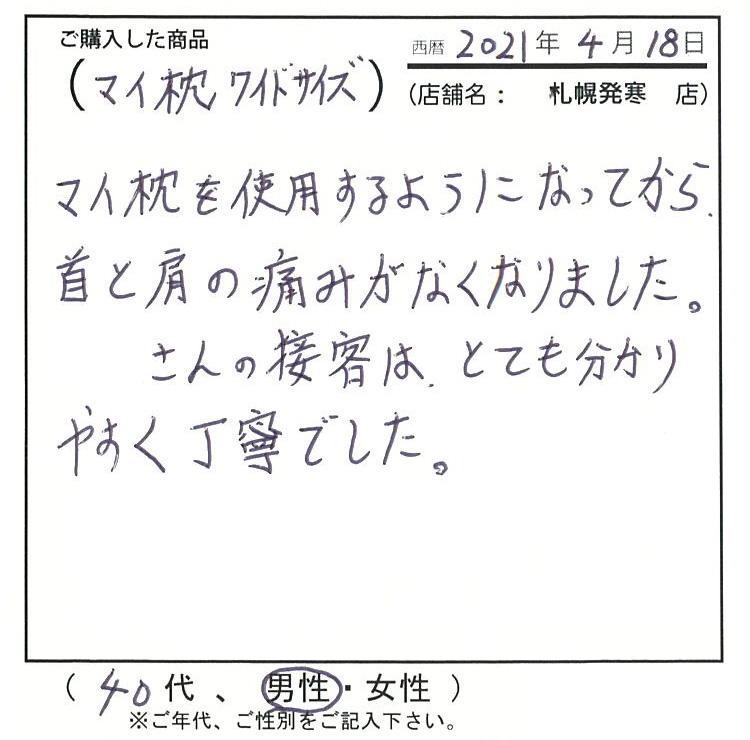 ご購入した商品
西暦 2021年 4月 18日
(マイ枕 ワイドサイズ)
(店舗名: 札幌発寒 店)
マイ枕を使用するようになってから、
首と肩の痛みがなくなりました。
さんの接客は、とても分かり
やすく丁寧でした。
( 40代 、 男性・女性 )
※ご年代、ご性別をご記入下さい。